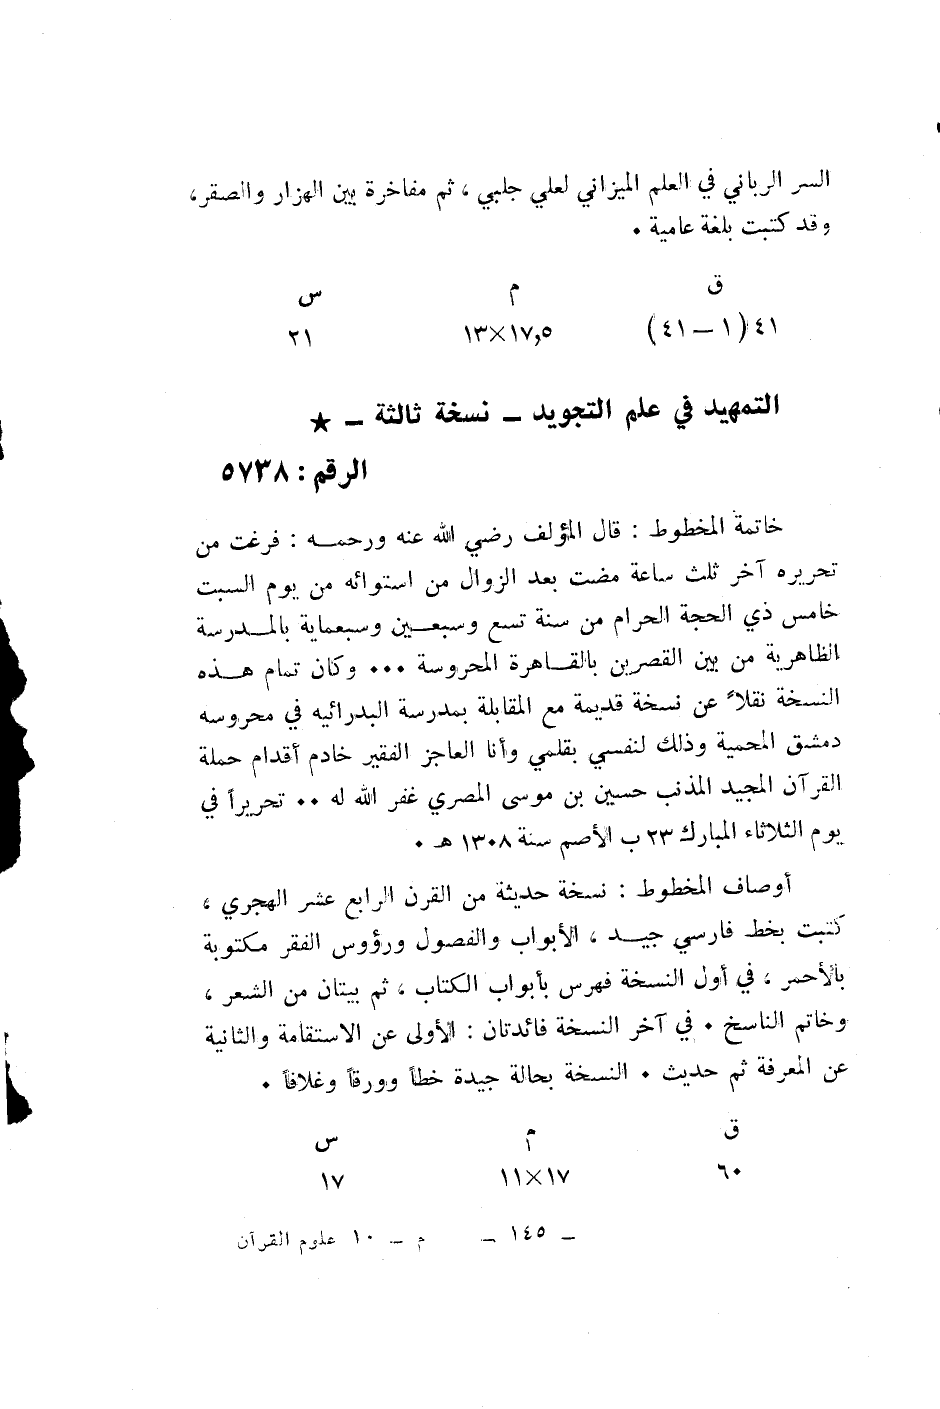 السر الرباني في العلم الميزاني لعلي جلبي ، ثم مفاخرة بين الهزار والصقر،
وقد كتبت بلغة عامية .
ق م س
٤١ (١ – ٤١) ١٧,٥×١٣ ٢١
التمهيد في علم التجويد – نسخة ثالثة – ★
الرقم : ٥٧٣٨
خاتمة المخطوط : قال المؤلف رضي الله عنه ورحمـــه : فرغت من
تحريره آخر ثلث ساعة مضت بعد الزوال من استوائه من يوم السبت
خامس ذي الحجة الحرام من سنة تسع وسبعـــين وسبعماية بالمـــدرسة
الظاهرية من بين القصرين بالقـــاهرة المحروسة ... وكان تمام هـــذه
النسخة نقلاً عن نسخة قديمة مع المقابلة بمدرسة البدرائيه في محروسه
دمشق المحمية وذلك لنفسي بقلمي وأنا العاجز الفقير خادم أقدام حملة
القرآن المجيد المذنب حسين بن موسى المصري غفر الله له .. تحريراً في
يوم الثلاثاء المبارك ٢٣ ب الأصم سنة ١٣٠٨ هـ .
أوصاف المخطوط : نسخة حديثة من القرن الرابع عشر الهجري ،
كتبت بخط فارسي جيـــد ، الأبواب والفصول ورؤوس الفقر مكتوبة
بالأحمر ، في أول النسخة فهرس بأبواب الكتاب ، ثم بيتان من الشعر ،
وخاتم الناسخ . في آخر النسخة فائدتان : الأولى عن الاستقامة والثانية
عن المعرفة ثم حديث . النسخة بحالة جيدة خطاً وورقاً وغلافاً .
ق م س
٦٠ ١٧×١١ ١٧
– ١٤٥ – م – ١٠ علوم القرآن